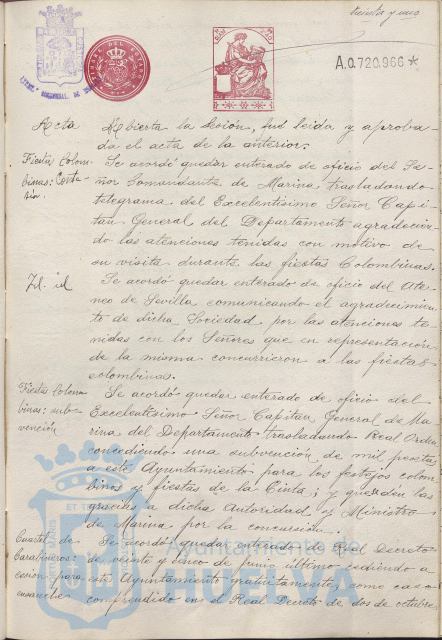 treinta y uno
TIMBRE DEL ESTADO
A.0.720.966 *
Acta
Abierta la Sesión, fué leida y aproba-
da el acta de la anterior.
Fiestas Colom-
binas:
Se acordó quedar enterado de oficio del Se-
ñor Comandante de Marina trasladando
telegrama del Excelentísimo Señor Capi-
tan General del Departamento agradecien-
do las atenciones tenidas con motivo de
su visita durante las fiestas Colombinas.
Id. id
Se acordó quedar enterado de oficio del Ate-
neo de Sevilla comunicando el agradecimien-
to de dicha Sociedad por las atenciones te-
nidas con los Señores que en representación
de la misma concurrieron a las fiestas
colombinas.
Fiestas Colom-
binas: sub-
vención
Se acordó quedar enterado de oficio del
Excelentísimo Señor Capitan General de Ma-
rina del Departamento trasladando Real Orden
concediendo una subvención de mil pesetas
a este Ayuntamiento para los festejos colom-
binos y fiestas de la Cinta; y que den las
gracias a dicha Autoridad y Ministro
de Marina por la concesión.
Cuartel de
Carabineros:
cesión para
ensanche
Se acordó quedar enterado de Real Decreto
de veinte y cinco de Junio último cediendo a
este Ayuntamiento gratuitamente, como caso
comprendido en el Real Decreto de dos de octubre
Ayuntamiento de
HUELVA